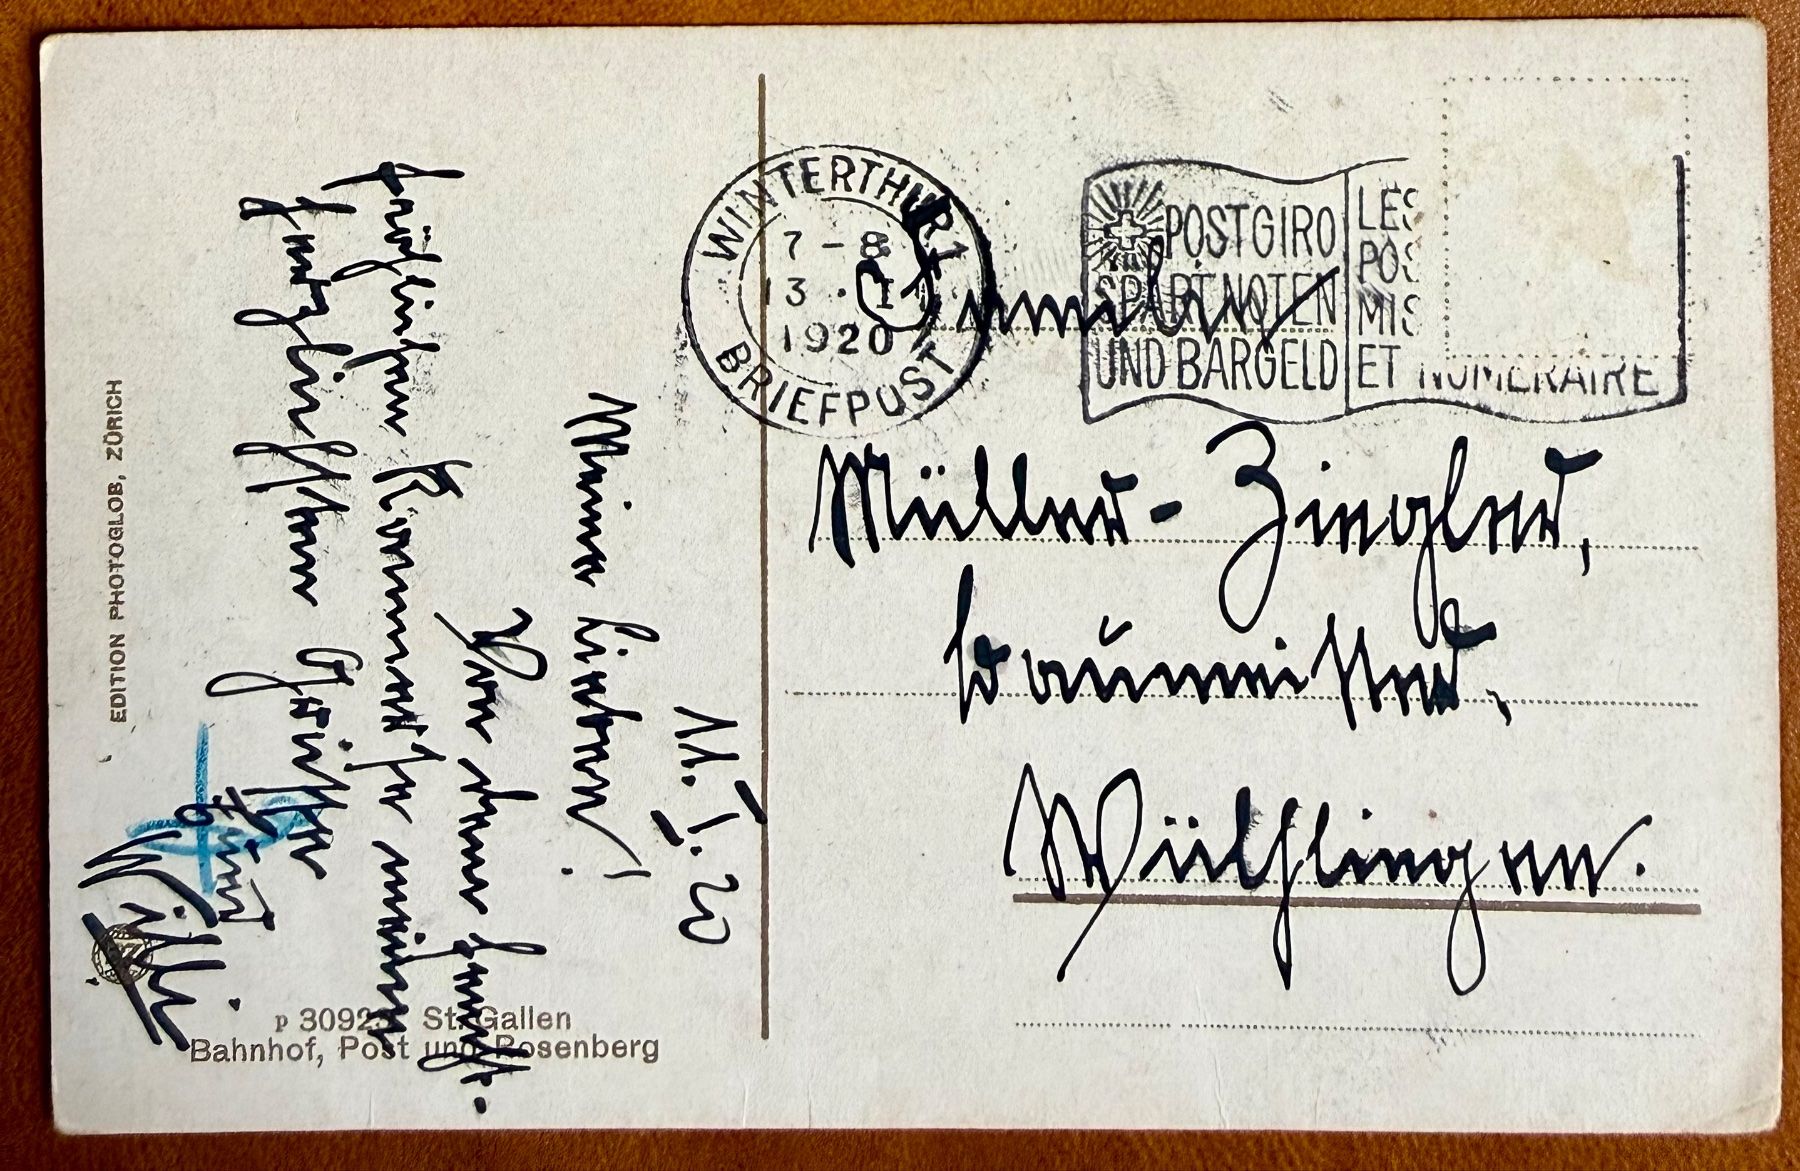 WINTERTHUR 1
7 - 8
13 . I
1920
BRIEFPOST
POSTGIRO
SPART NOTEN
UND BARGELD
LES
POS
MIS
ET NUMERAIRE
Familie
Müller-Ziegler,
Baumeister,
Wülflingen.
11. I. 20
Meine Lieben!
Von dem
fröhlichen
herzlichsten
Euer
Willi
EDITION PHOTOGLOB, ZÜRICH
St. Gallen
Bahnhof, Post und Rosenberg